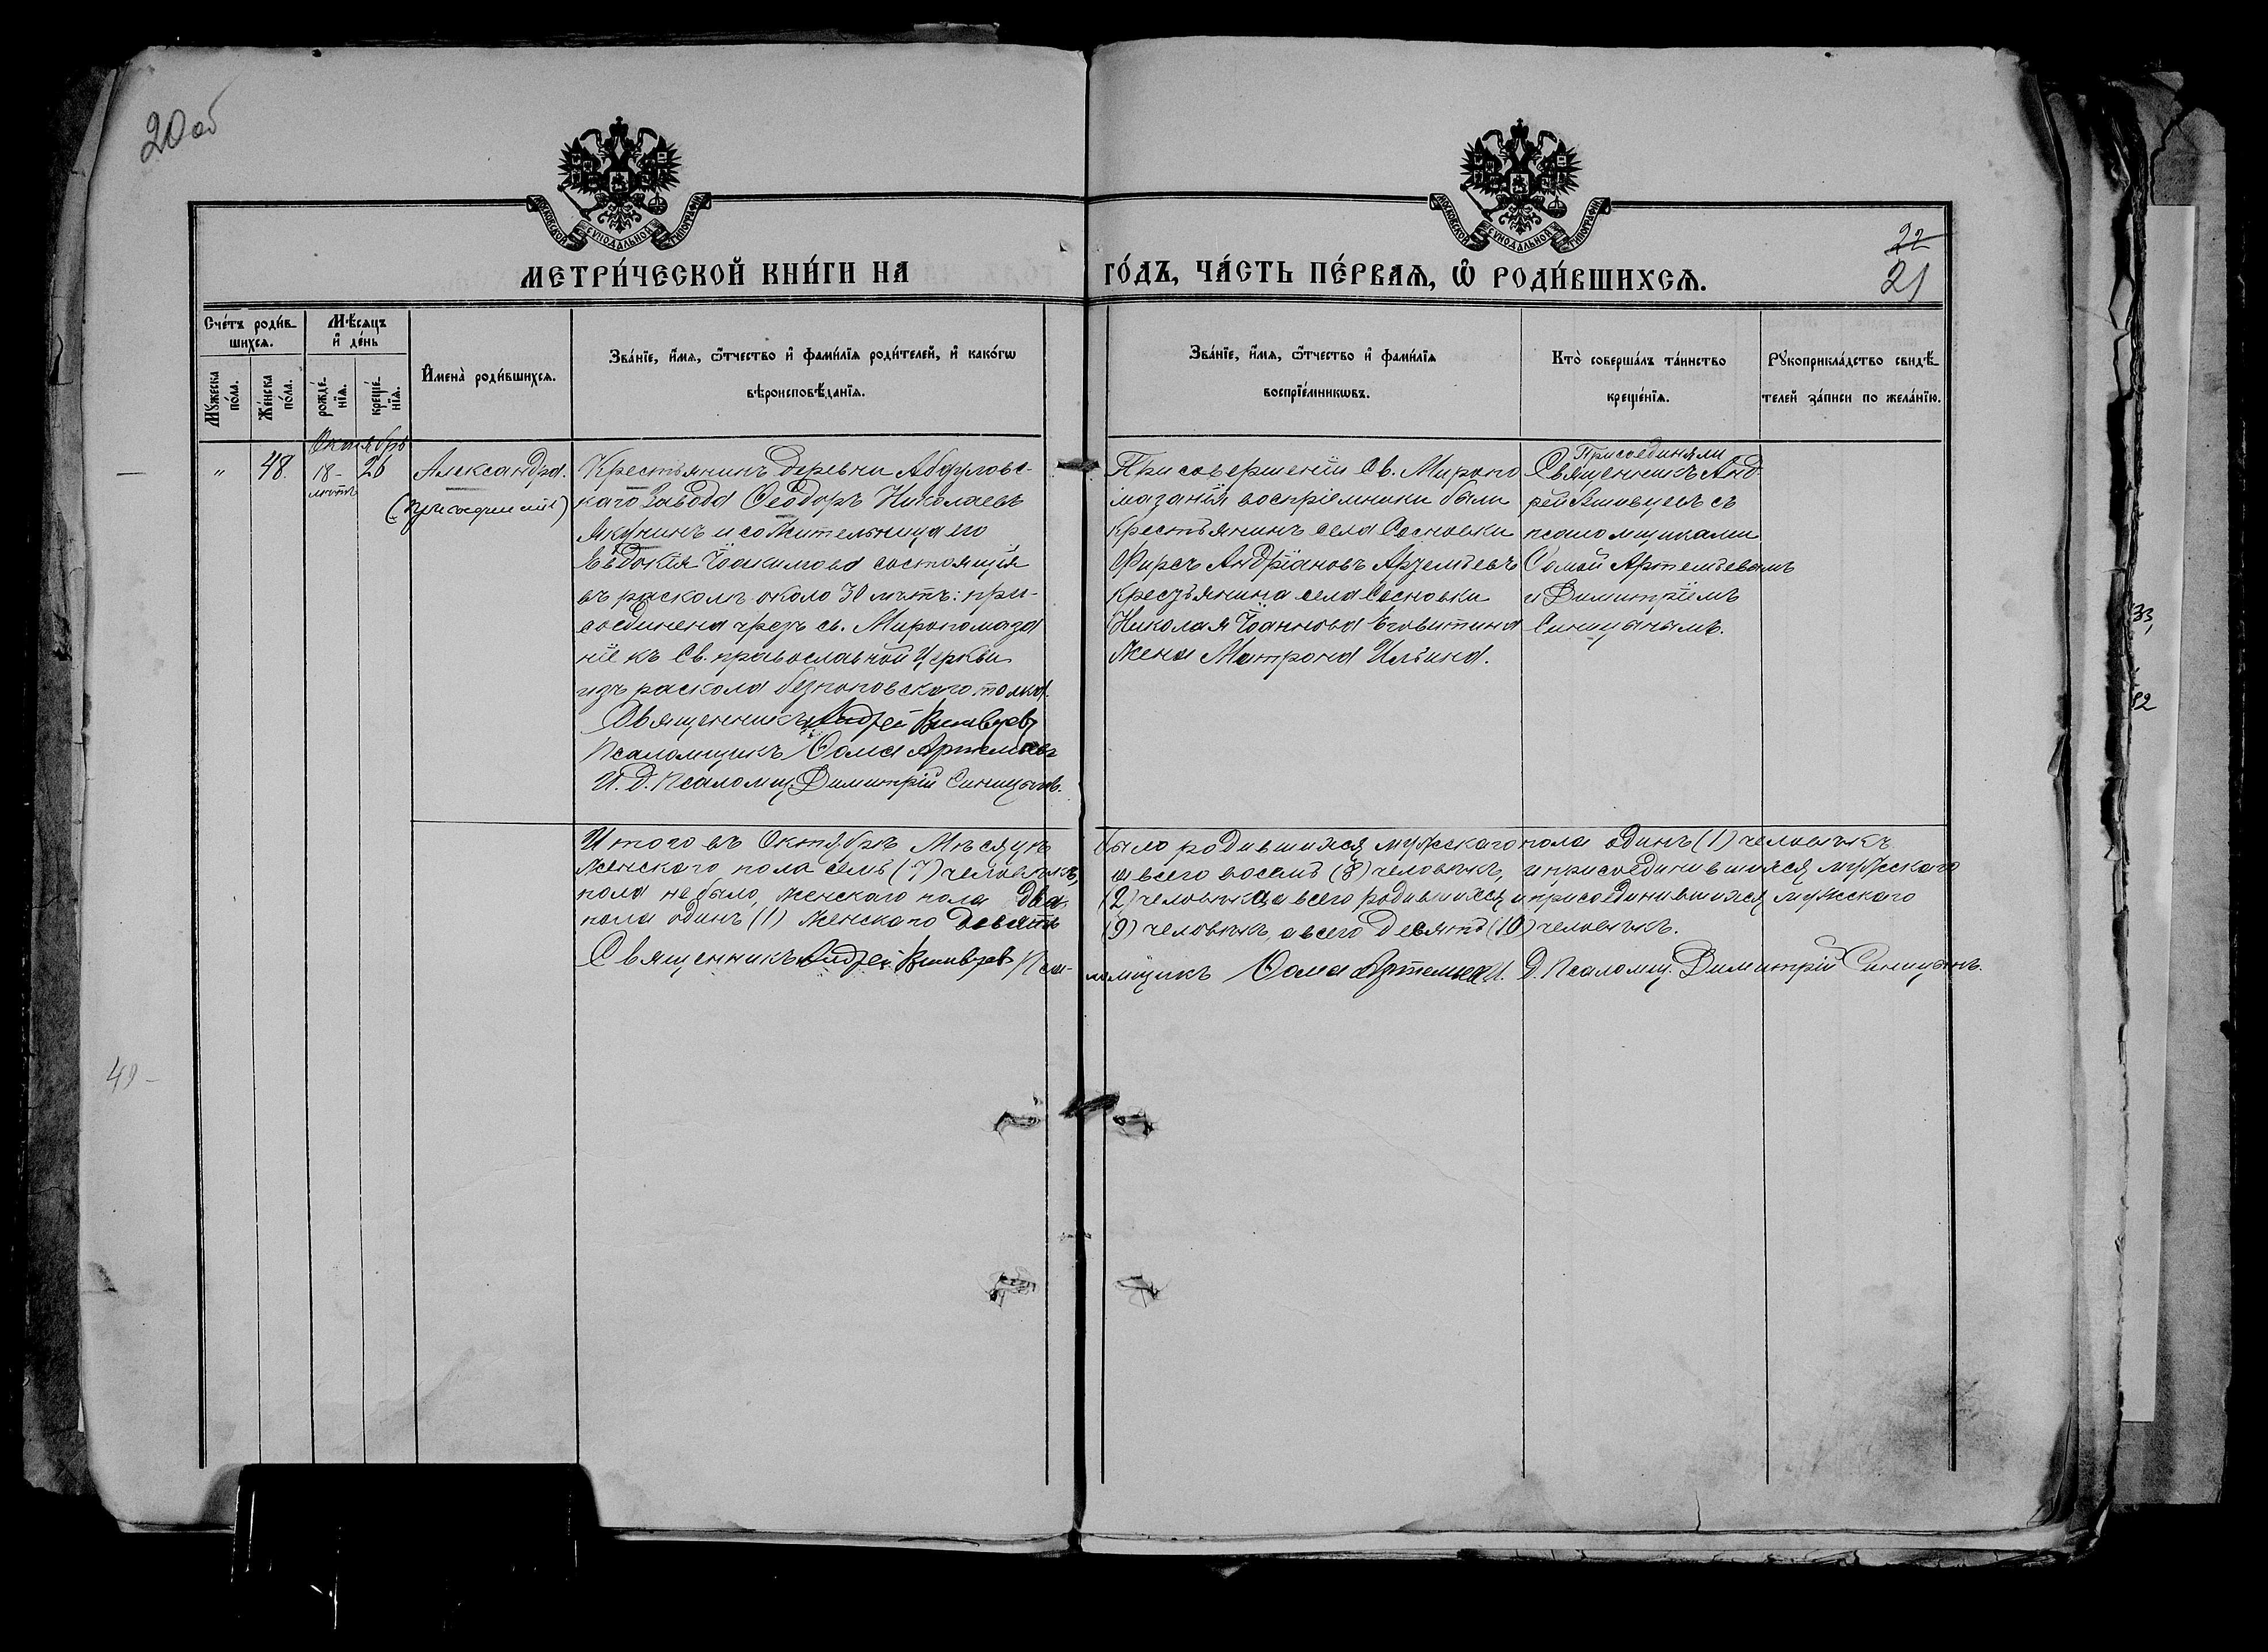 20 об
МОСКОВСКОЙ СѴНОДАЛЬНОЙ ТИПОГРАФІИ
МОСКОВСКОЙ СѴНОДАЛЬНОЙ ТИПОГРАФІИ
22
21
МЕТРИ́ЧЕСКОЙ КНИ́ГИ НА
ГО́ДЪ, ЧА́СТЬ ПЕ́РВАѦ, Ѿ РОДИ́ВШИХСѦ.
Сче́тъ роди́в-
шихсѧ.
Мꙋ́жеска по́ла.
Же́нска по́ла.
Мѣ́сѧцъ
и҆ де́нь
рожде́-
нїѧ.
креще́-
нїѧ.
И҆мена̀ роди́вшихсѧ.
Зва́нїе, и҆́мѧ, ѻ҆́тчество и҆ фами́лїѧ роди́телей, и҆ како́гѡ
вѣроисповѣ́данїѧ.
Зва́нїе, и҆́мѧ, ѻ҆́тчество и҆ фами́лїѧ
воспрїе́мникѡвъ.
Кто̀ соверша́лъ та́инство
креще́нїѧ.
Рꙋкоприкла́дство свидѣ́-
телей за́писи по жела́нїю.
Октябрь
"
48.
18-
лѣтъ
26
Александра.
(присоединеніе)
Крестьянинъ деревни Абдуловс-
каго Завода Ѳеодоръ Николаевъ
Якунинъ и сожительница его
Евдокія Іоакимова состоящія
въ расколѣ около 30 лѣтъ: при-
соединена чрезъ св. Миропомаза
ніе къ Св. православной Церкви
изъ раскола безпоповскаго толка.
Священникъ Андрей
Псаломщикъ Ѳома Артемьевъ
И. Д. Псаломщ. Димитрій Синицынъ.
При совершеніи Св. Миропо
мазанія воспріемники были
крестьянинъ села Сосновки
Фирсъ Андріановъ Артемьевъ
крестьянина села Сосновки
Николая Іоаннова Еговитина
жена Матрона Ильина.
Присоединяли
Священникъ Анд
рей съ
псаломщиками
Ѳомой Артемьевымъ
и Димитріемъ
Синицынымъ.
Итого въ Октябрѣ Мѣсяцѣ было родившихся мужскаго пола одинъ (1) человѣкъ
женскаго пола семь (7) человѣкъ, а всего восемь (8) человѣкъ, и присоединившихся мужскаго
пола не было, женскаго пола два (2) человѣка, а всего родившихся и присоединившихся мужскаго
пола одинъ (1) женскаго девять (9) человѣкъ, а всего девять (10) человѣкъ.
Священникъ Андрей Псаломщикъ Ѳома Артемьевъ И. Д. Псаломщ. Димитрій Синицынъ.
49-
33,
82